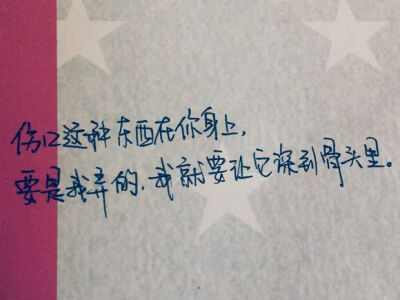 伤口这种东西在你身上，
要是我弄的，我就要让它深到骨头里。